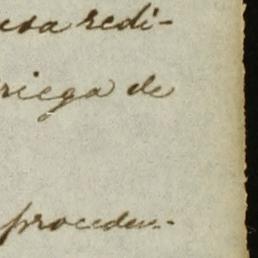 esa redi-
riega de
proceden-